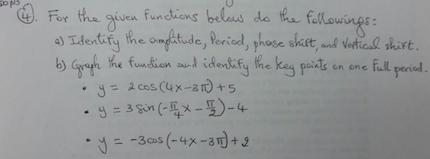 50 pts
④. For the given functions below do the followings:
a) Identify the amplitude, Period, phase shift, and Vertical shift.
b) Graph the function and identify the key points on one full period.
• y = 2cos(4x-3π)+5
• y = 3 sin(-π/4 x - π/2)-4
• y = -3cos(-4x-3π)+2